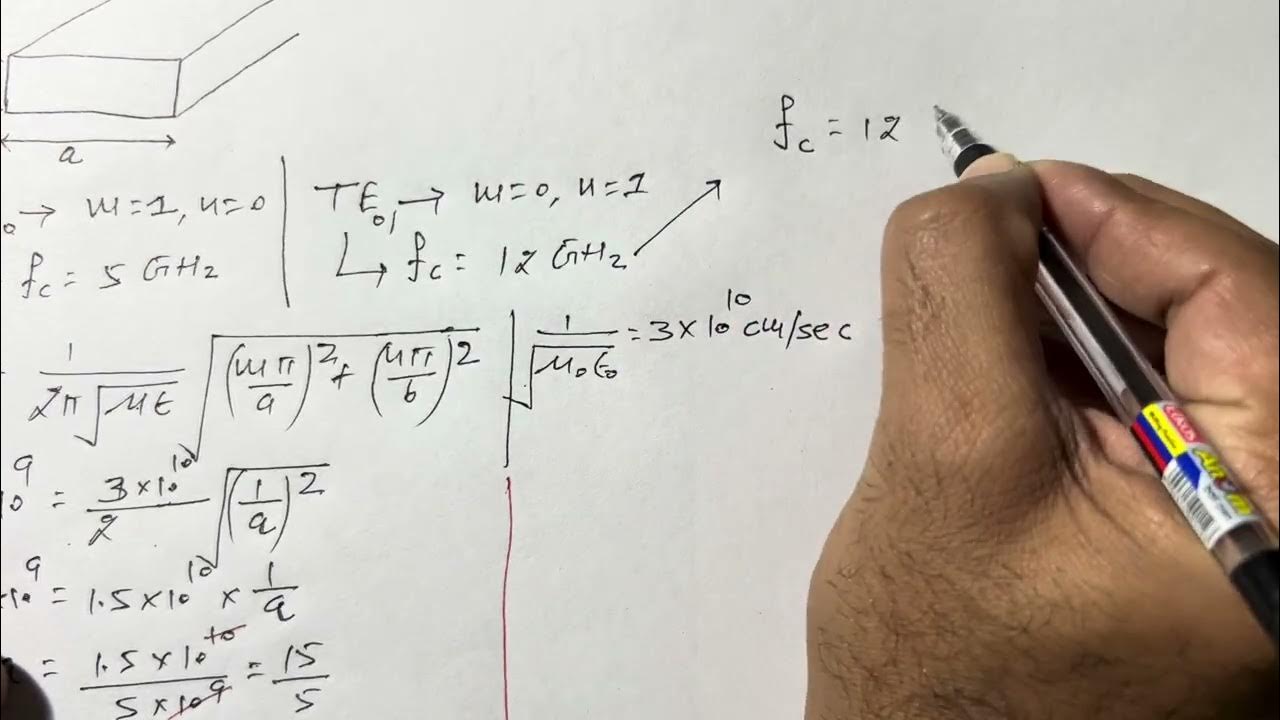 a
₀ → m=1, n=0
f_c = 5 GHz
TE₀₁ → m=0, n=1
↳ f_c = 12 GHz
f_c = 12
1/(2π√με) √((mπ/a)² + (nπ/b)²)
1/√μ₀ε₀ = 3×10¹⁰ cm/sec
10⁹ = 3×10¹⁰/2 √(1/a)²
×10⁹ = 1.5×10¹⁰ × 1/a
= 1.5×10¹⁰/5×10⁹ = 15/5